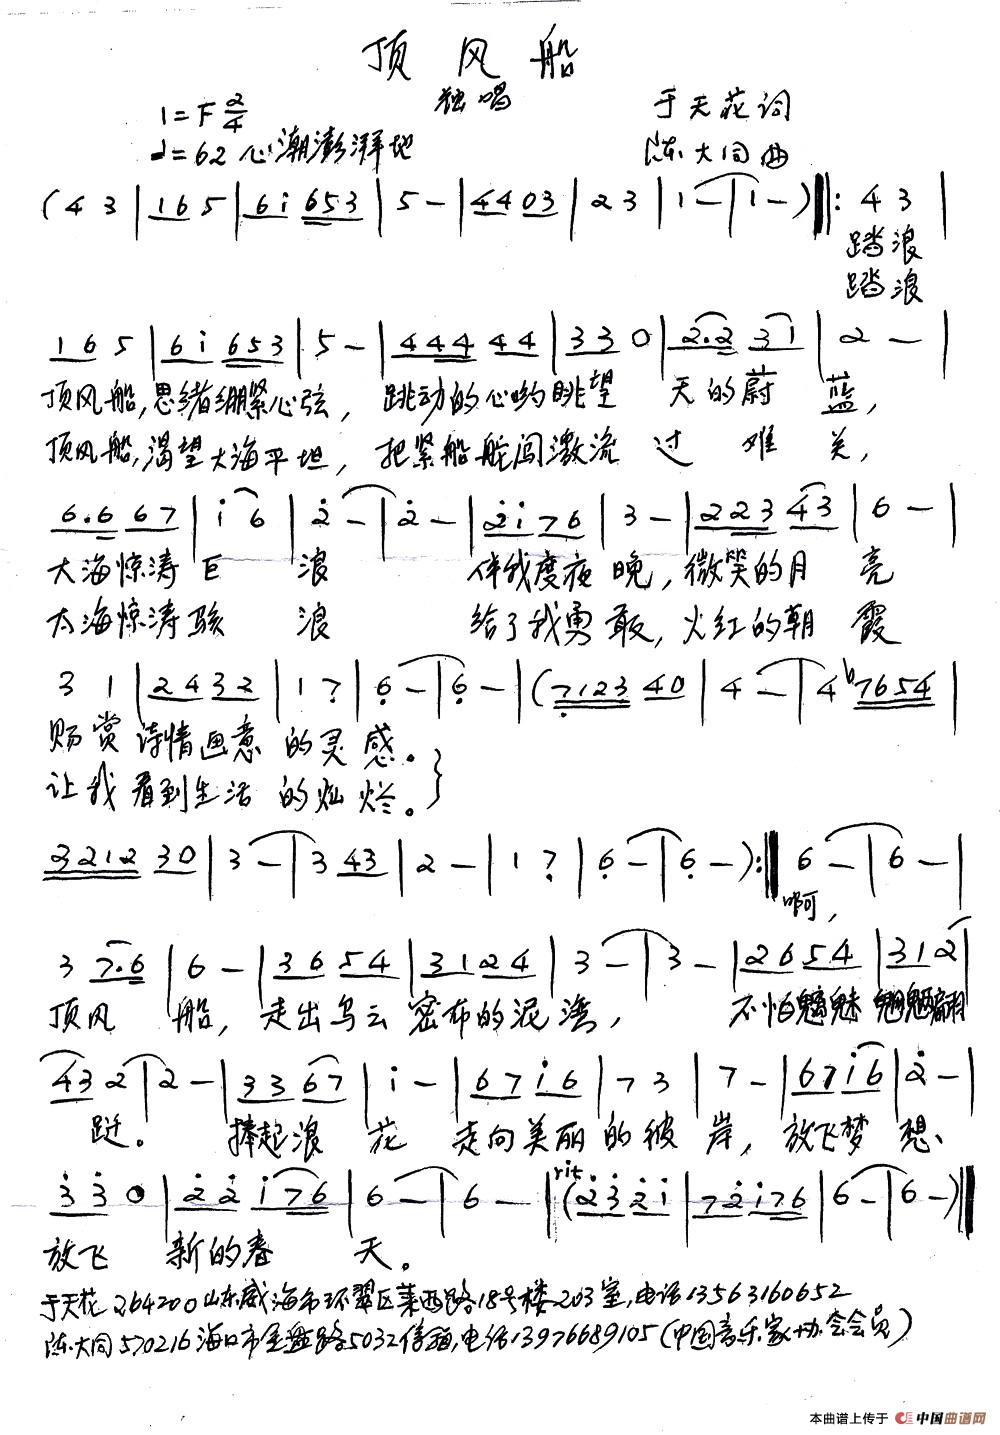 顶风船
独唱
1=F 2/4 于天花词
♩=62 心潮澎湃地 陈大同曲
(4 3 | 1 6 5 | 6 i 6 5 3 | 5 - | 4 4 0 3 | 2 3 | 1 - | 1 - ) ‖: 4 3 |
踏浪
踏浪
1 6 5 | 6 i 6 5 3 | 5 - | 4 4 4 4 4 | 3 3 0 | 2. 2 3 1 | 2 - |
顶风船,思绪绷紧心弦, 跳动的心哟眺望 天的蔚 蓝,
顶风船,渴望大海平坦, 把紧船舵闯激流 过 难 关,
6. 6 6 7 | i 6 | 2̇ - | 2̇ - | 2̇ i 7 6 | 3 - | 2 2 3 4 3 | 6 - |
大海惊涛巨 浪 伴我度夜晚,微笑的月 亮
大海惊涛骇 浪 给了我勇敢,火红的朝 霞
3 1 | 2 4 3 2 | 1 7̣ | 6̣ - | 6̣ - | (7̣ 1 2 3 4 0 | 4 - | 4 ♭7 6 5 4 |
赐赏 诗情画意 的灵 感。
让我 看到生活 的灿 烂。
3 2 1 2 3 0 | 3 - | 3 4 3 | 2 - | 1 7̣ | 6̣ - | 6̣ - ) :‖ 6 - | 6 - |
啊,
3 7. 6 | 6 - | 3 6 5 4 | 3 1 2 4 | 3 - | 3 - | 2 6 5 4 | 3 1 2 |
顶风 船, 走出乌云 密布的泥湾, 不怕魑魅 魍魉翩
4 3 2 | 2 - | 3 3 6 7 | i - | 6 7 i 6 | 7 3 | 7 - | 6 7 i 6 | 2̇ - |
跹。 捧起浪 花 走向美丽 的彼 岸, 放飞梦 想、
3̇ 3̇ 0 | 2̇ 2̇ i 7 6 | 6 - | 6 - | rit (2̇ 3̇ 2̇ i | 7 2̇ i 7 6 | 6 - | 6 - ) ‖
放飞 新的春 天。
于天花 264200 山东威海市环翠区莱西路18号楼203室,电话13563160652
陈大同 570216 海口市金盘路5032信箱,电话13976689105(中国音乐家协会会员)
本曲谱上传于 中国曲谱网